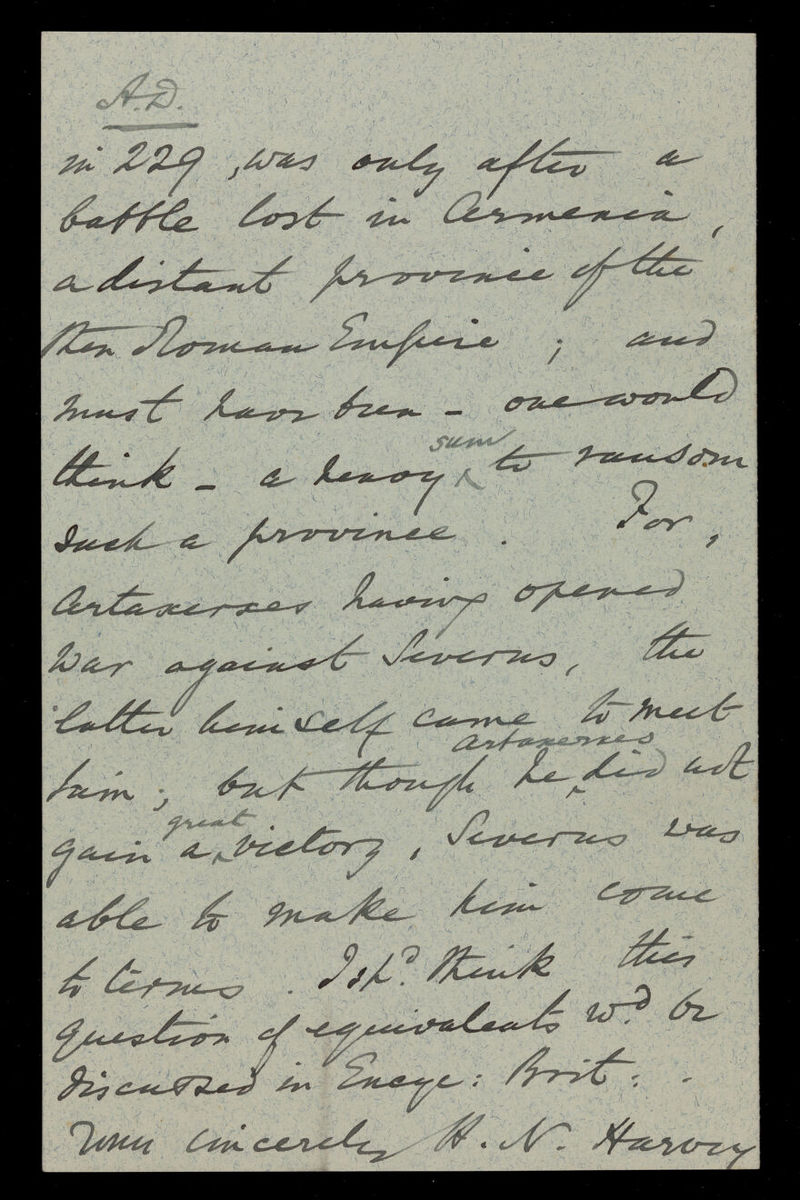 A.D.
in 229, was only after a
battle lost in Armenia,
a distant province of the
then Roman Empire; and
must have been - one would
sum
think - a heavy ^ to ransom
such a province. For,
Artaxerxes having opened
war against Severus, the
latter himself came to meet
Artaxerxes
him; but though he ^ did not
great
gain a ^ victory, Severus was
able to make him come
to terms. I shd. think this
question of equivalents wd. be
discussed in Encyc: Brit:.
Yours sincerely H. N. Harvey